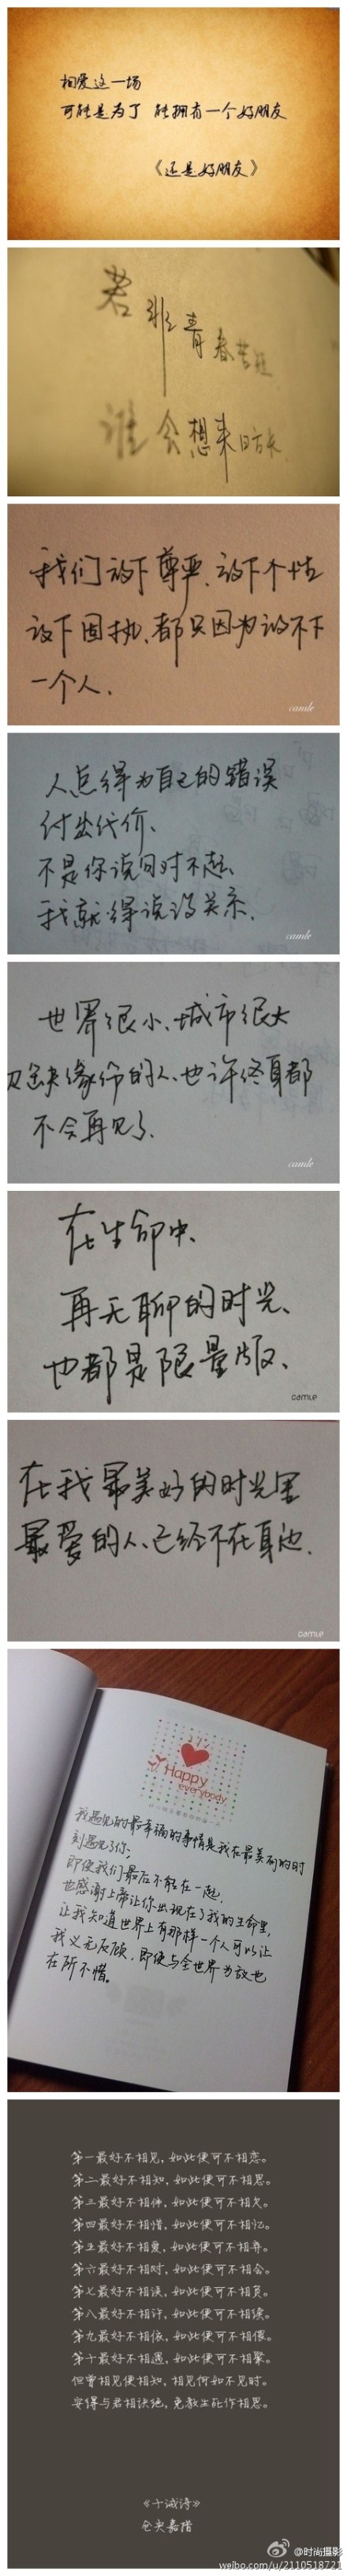 相爱这一场
可能是为了 能拥有一个好朋友
《还是好朋友》
若非青春苦短
谁会想来日方长
我们放下尊严、放下个性
放下固执、都只因为放不下
一个人.
camle
人总得为自己的错误
付出代价、
不是你说句对不起、
我就得说没关系、
camle
世界很小、城市很大
又缺缘份的人、也许终身都
不会再见了、
camle
在生命中、
再无聊的时光、
也都是限量版、
camle
在我最美好的时光里
最爱的人、已经不在身边、
camle
Happy
everybody
我遇见的最幸福的事情是我在最美丽的时
刻遇见了你,
即使我们最后不能在一起,
也感谢上帝让你出现在了我的生命里,
让我知道世界上有那样一个人可以让
我义无反顾,即使与全世界为敌也
在所不惜。
第一最好不相见,如此便可不相恋。
第二最好不相知,如此便可不相思。
第三最好不相伴,如此便可不相欠。
第四最好不相惜,如此便可不相忆。
第五最好不相爱,如此便可不相弃。
第六最好不相对,如此便可不相会。
第七最好不相误,如此便可不相负。
第八最好不相许,如此便可不相续。
第九最好不相依,如此便可不相偎。
第十最好不相遇,如此便可不相聚。
但曾相见便相知,相见何如不见时。
安得与君相决绝,免教生死作相思。
《十诫诗》
仓央嘉措
@时尚摄影
weibo.com/u/2110518721